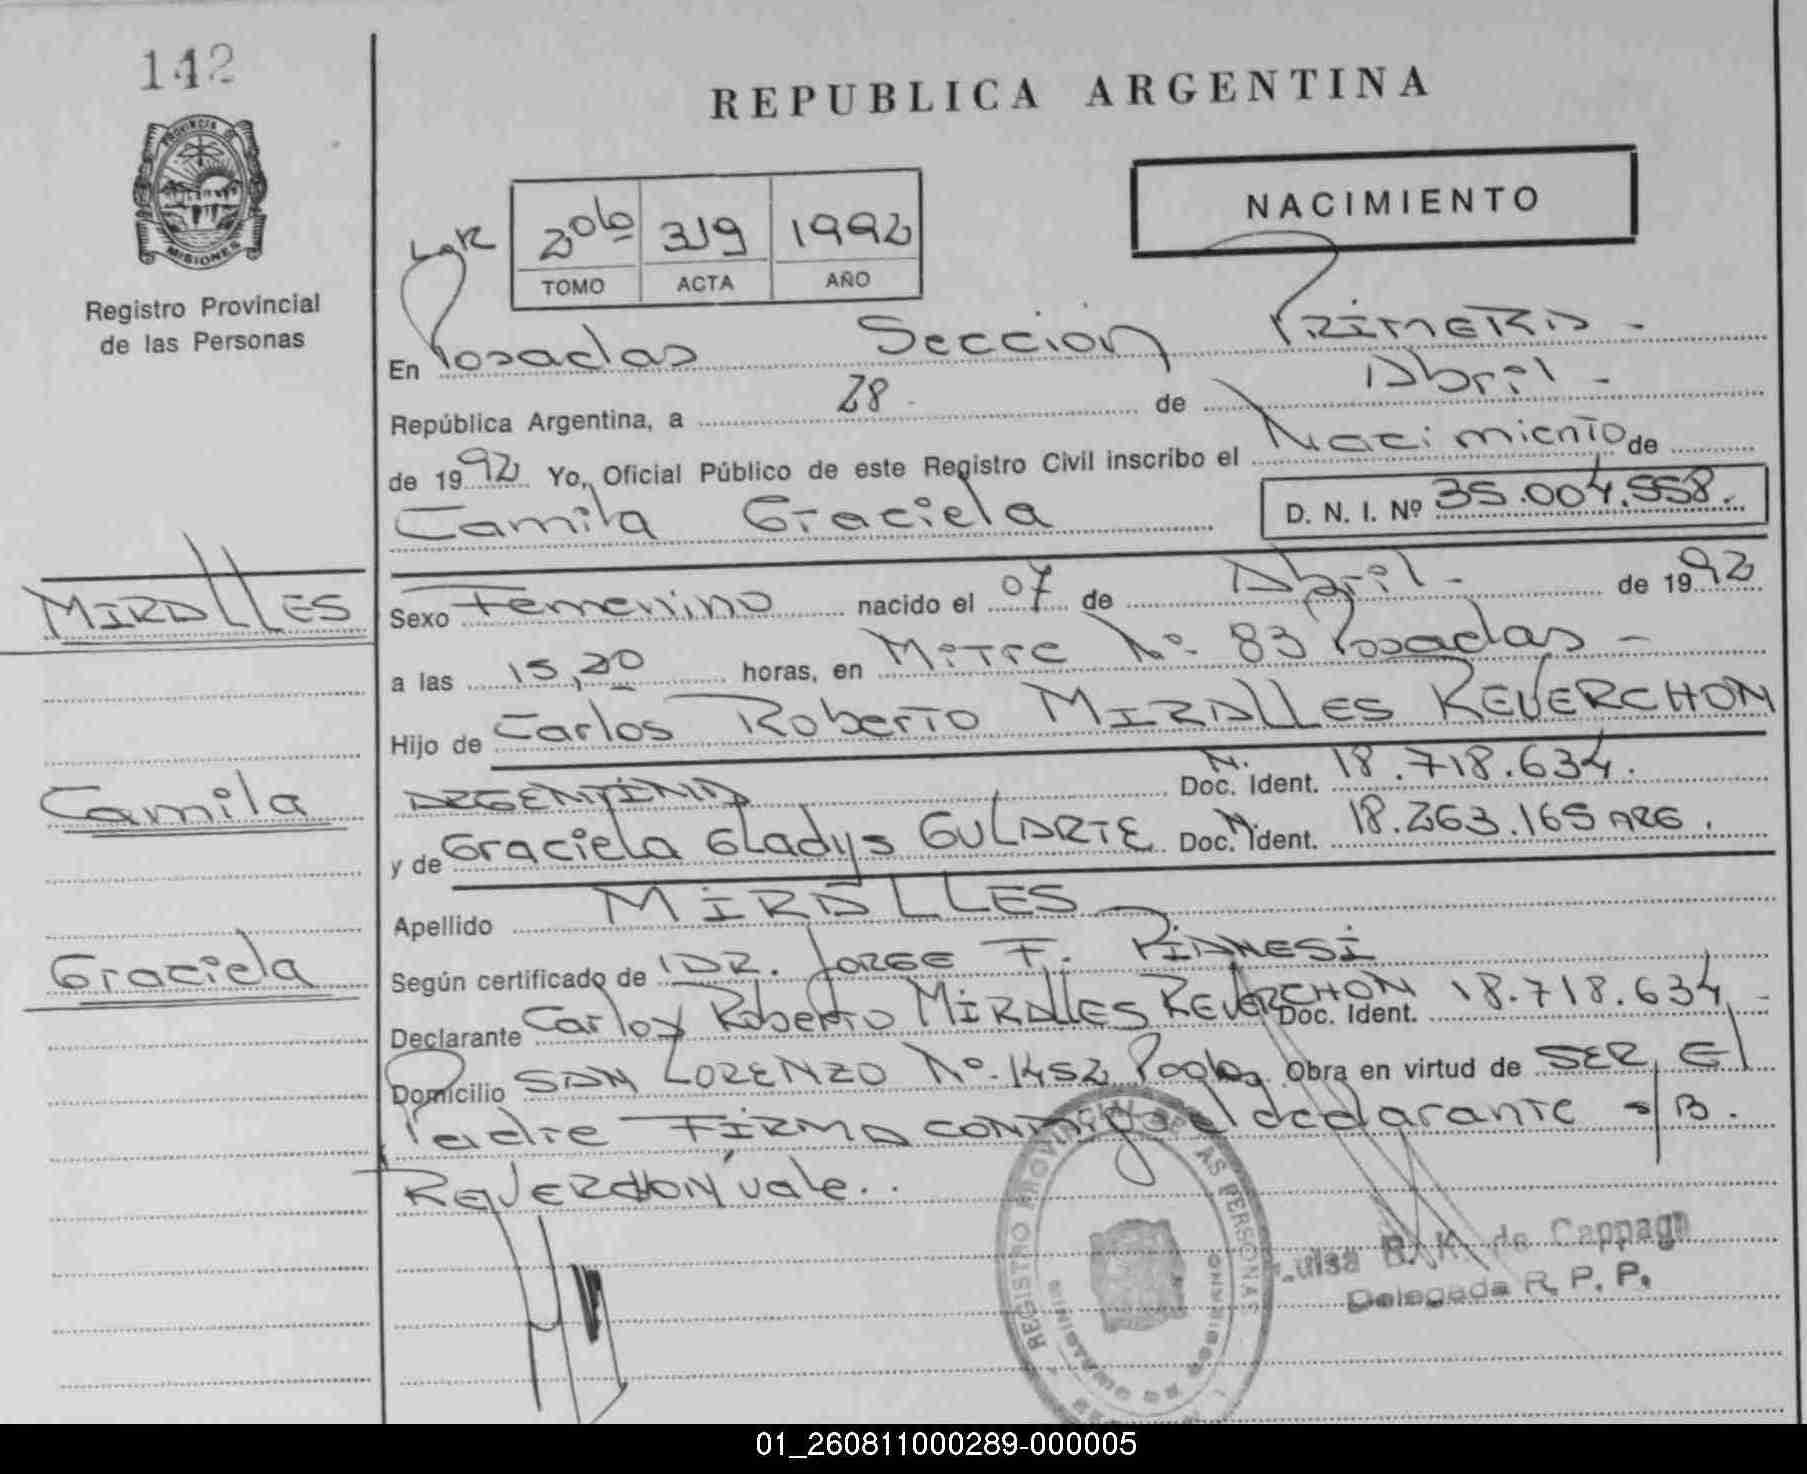 142
PROVINCIA DE
MISIONES
Registro Provincial
de las Personas
REPUBLICA ARGENTINA
NACIMIENTO
2do 319 1992
TOMO ACTA AÑO
En Posadas Sección Primera -
República Argentina, a 28 de Abril -
de 1992 Yo, Oficial Público de este Registro Civil inscribo el Nacimiento de
Camila Graciela D. N. I. Nº 35.004.558.
MIRALLES
Camila
Graciela
Sexo Femenino nacido el 07 de Abril - de 1992
a las 15,20 horas, en Mitre Nº 83 Posadas -
Hijo de Carlos Roberto MIRALLES REVERCHON
ARGENTINA Doc. N. Ident. 18.718.634.
y de Graciela Gladys GULARTE Doc. N. Ident. 18.263.165 ARG.
Apellido MIRALLES
Según certificado de DR. JORGE F. PIANESI
Declarante Carlos Roberto MIRALLES REVERCHON Doc. Ident. 18.718.634 -
Domicilio SAN LORENZO Nº 1452 Pdas Obra en virtud de SER El
Padre FIRMA CONMigo el declarante s/B.
REVERCHON vale..
REGISTRO PROVINCIAL DE LAS PERSONAS
MISIONES
Luisa B. K. de Cappagn
Delegada R. P. P.
01_260811000289-000005